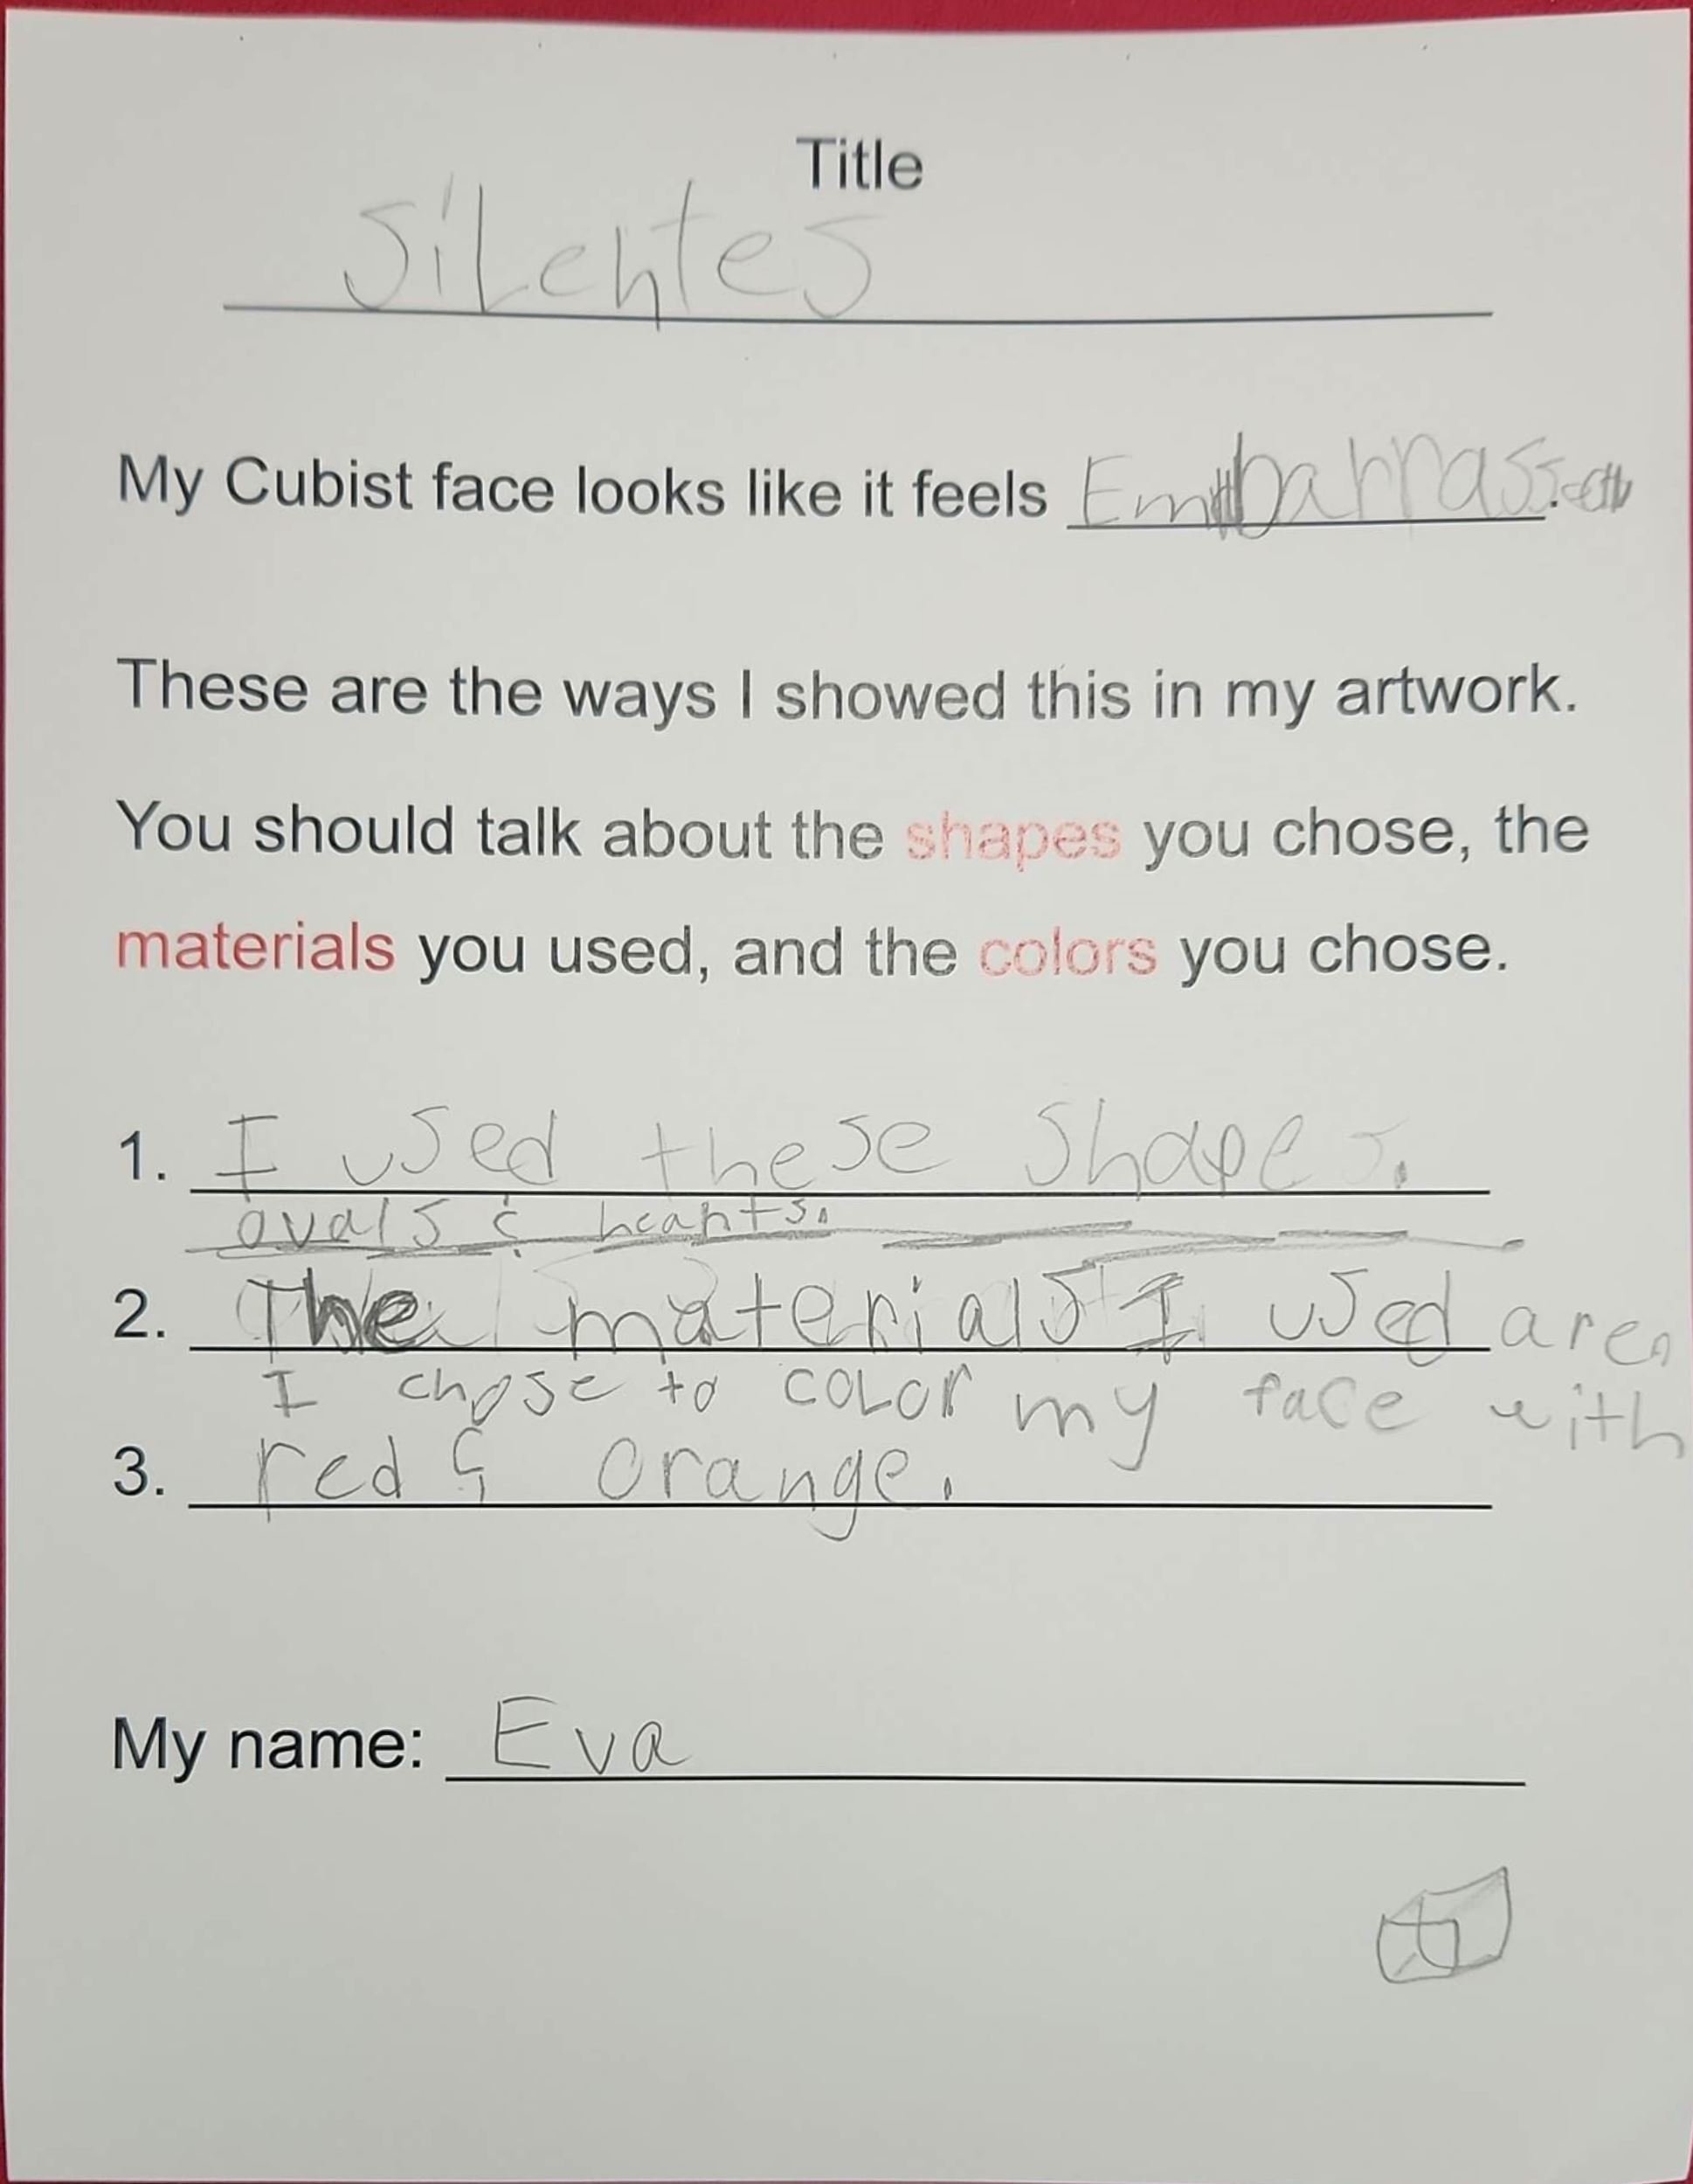 Title
SiLentes
My Cubist face looks like it feels Embarrassed.
These are the ways I showed this in my artwork.
You should talk about the shapes you chose, the
materials you used, and the colors you chose.
1. I used these shapes.
ovals & hearts.
2. The materials I used are
I chose to coLor my face with
3. red & orange.
My name: Eva